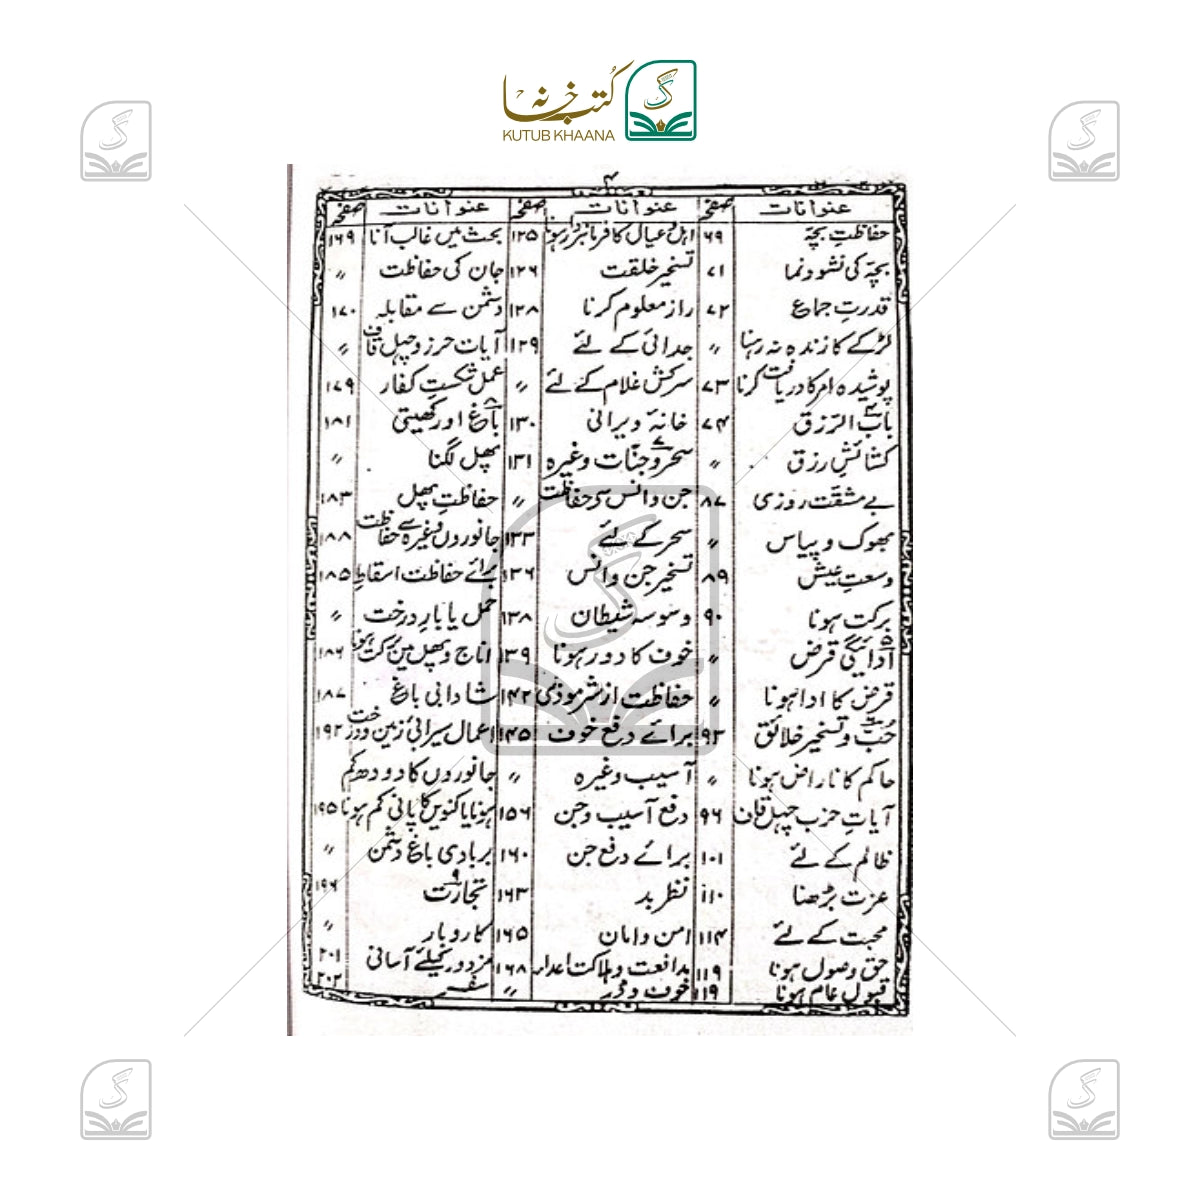 کتب خانہ
KUTUB KHAANA
۴
عنوانات صفحہ عنوانات صفحہ عنوانات صفحہ
حفاظتِ بچّہ ۶۹ اہل و عیال کا فرمانبردار ہونا ۱۲۵ بحث میں غالب آنا ۱۶۹
بچّہ کی نشوونما ۷۱ تسخیر خلقت ۱۲۶ جان کی حفاظت 〃
قدرتِ جماع ۷۲ راز معلوم کرنا ۱۲۸ دشمن سے مقابلہ ۱۷۰
لڑکے کا زندہ نہ رہنا 〃 جدائی کے لئے ۱۲۹ آیات حرز و چہل قاف 〃
پوشیدہ امر کا دریافت کرنا ۷۳ سرکش غلام کے لئے 〃 عمل شکستِ کفار ۱۷۹
بابُ الرّزق ۷۴ خانہ ویرانی ۱۳۰ باغ اور کھیتی ۱۸۱
کشائشِ رزق 〃 سحر و جنّات وغیرہ ۱۳۱ پھل لگنا 〃
بے مشقّت روزی ۸۷ جن و انس سے حفاظت 〃 حفاظتِ پھل ۱۸۳
بھوک و پیاس 〃 سحر کے لئے ۱۳۳ جانوروں وغیرہ سے حفاظت ۱۸۸
وسعتِ عیش ۸۹ تسخیر جن و انس ۱۳۶ برائے حفاظت اسقاطِ ۱۸۵
برکت ہونا ۹۰ وسوسہ شیطان ۱۳۸ حمل یا بارِ درخت 〃
ادائیگی قرض 〃 خوف کا دور ہونا ۱۳۹ اناج و پھل میں برکت ہونا ۱۸۶
قرض کا ادا ہونا 〃 حفاظت از شر موذی ۱۴۲ شادابی باغ ۱۸۷
حُبّ و تسخیر خلائق ۹۳ برائے دفع خوف ۱۴۵ اعمال سیرابی زمین و درخت ۱۹۲
حاکم کا ناراض ہونا 〃 آسیب وغیرہ 〃 جانوروں کا دودھ کم
آیاتِ حزب چہل قاف ۹۶ دفع آسیب و جن ۱۵۶ ہونا یا کنویں کا پانی کم ہونا ۱۹۵
ظالم کے لئے ۱۰۱ برائے دفع جن ۱۶۰ بربادی باغ دشمن 〃
عزت بڑھنا ۱۱۰ نظر بد ۱۶۳ تجارت ۱۹۶
محبت کے لئے ۱۱۴ امن و امان ۱۶۵ کاروبار 〃
حق وصول ہونا ۱۱۹ مدافعت و ہلاکت اعداء ۱۶۸ مزدور کیلئے آسانی ۲۰۱
قبول عام ہونا ۱۱۹ خوف و ڈر 〃 سفر ۲۰۲